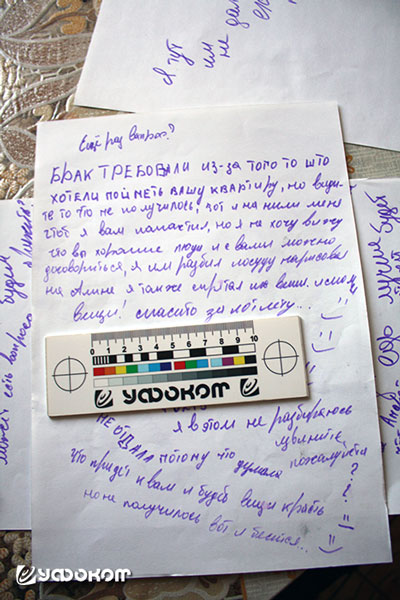 Я тут
им
не дал
Ещё раз вопрос?
БРАК ТРЕБОВАЛИ ИЗ-ЗА ТОГО ТО ШТО
ХОТЕЛИ ПОЙМЕТЬ ВАШУ КВАРТИРУ, но види
те то что не получилось, вот и на нили меня
чтоб я вам напакастил, но я не хочу вижу
что вы хорошие люди и с вами можно
договориться, я им разбил посуду нарисовал
на
и также спрятал
вещи. и
вещи! спасибо за котлету...
0 1 2 3 4 5 6 7 8 9 10
УФОКОМ
я в этом не разбираюсь
НЕ ОТДАЛА потому что думала извините, пожалуйста
Что придёт к вам и будет вещи красть ?
но не получилось вот и бесится...
может есть вопросы
Будем
лучше будет
УФОКОМ